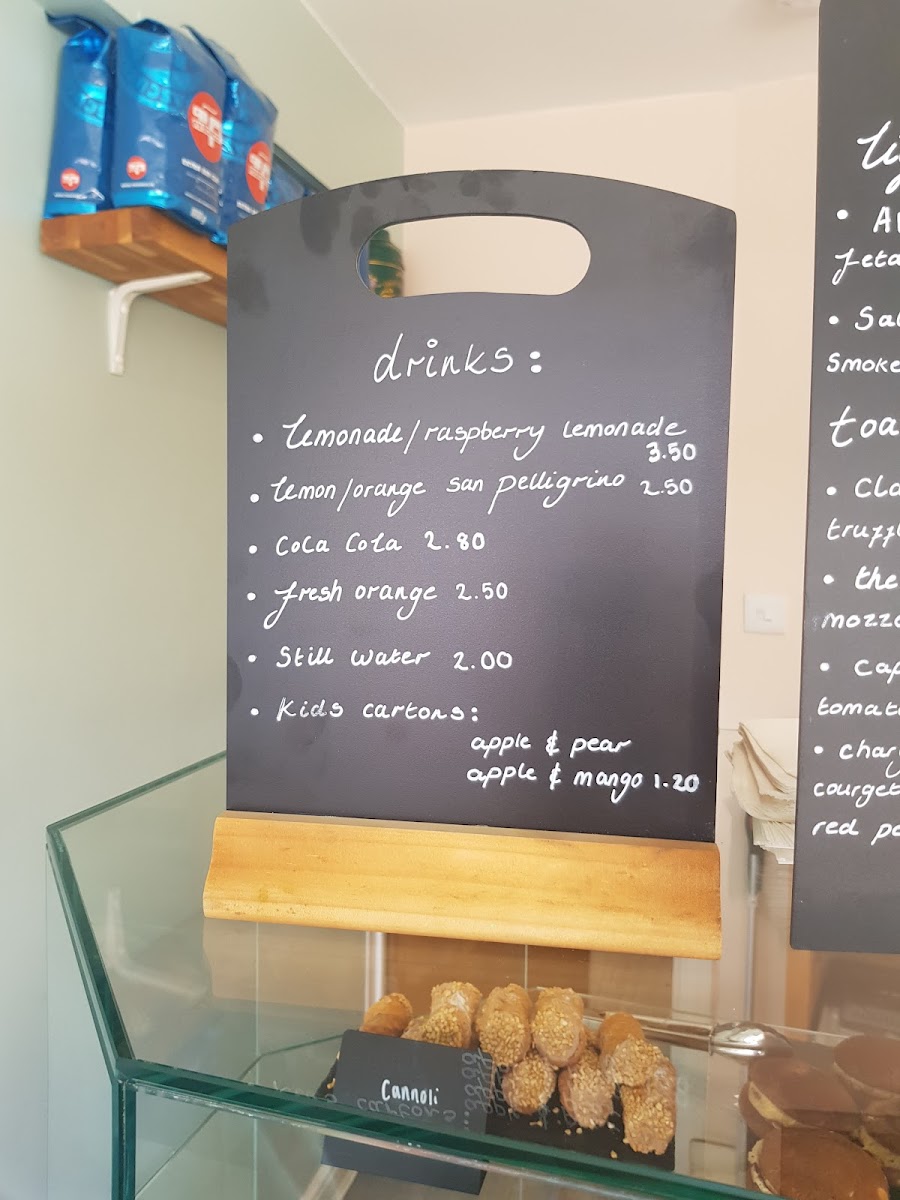 drinks:
• Lemonade/raspberry Lemonade
3.50
• Lemon/orange san pelligrino 2.50
• Coca Cola 2.80
• fresh orange 2.50
• Still water 2.00
• Kids cartons:
apple & pear
apple & mango 1.20
Cannoli
feta
toa
truff
the
mozza
tomat
courget
red